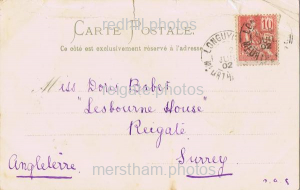 redhill.photos
CARTE POSTALE.
Ce côté est exclusivement réservé à l'adresse
10
02
Miss Dores Baker
reigate.photos
"Lesbourne House"
Reigate
Angleterre.
Surrey
merstham.photos